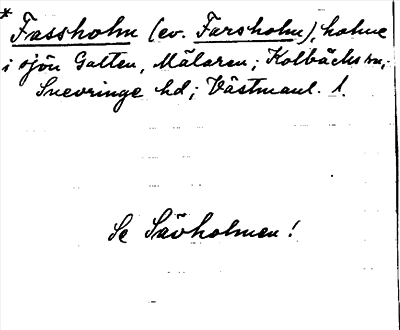 * Fassholm (ev. Farsholm), holme
i sjön Gatten, Mälaren; Kolbäcks sn,
Snevringe hd; Västmanl. l.
Se Sävholmen!